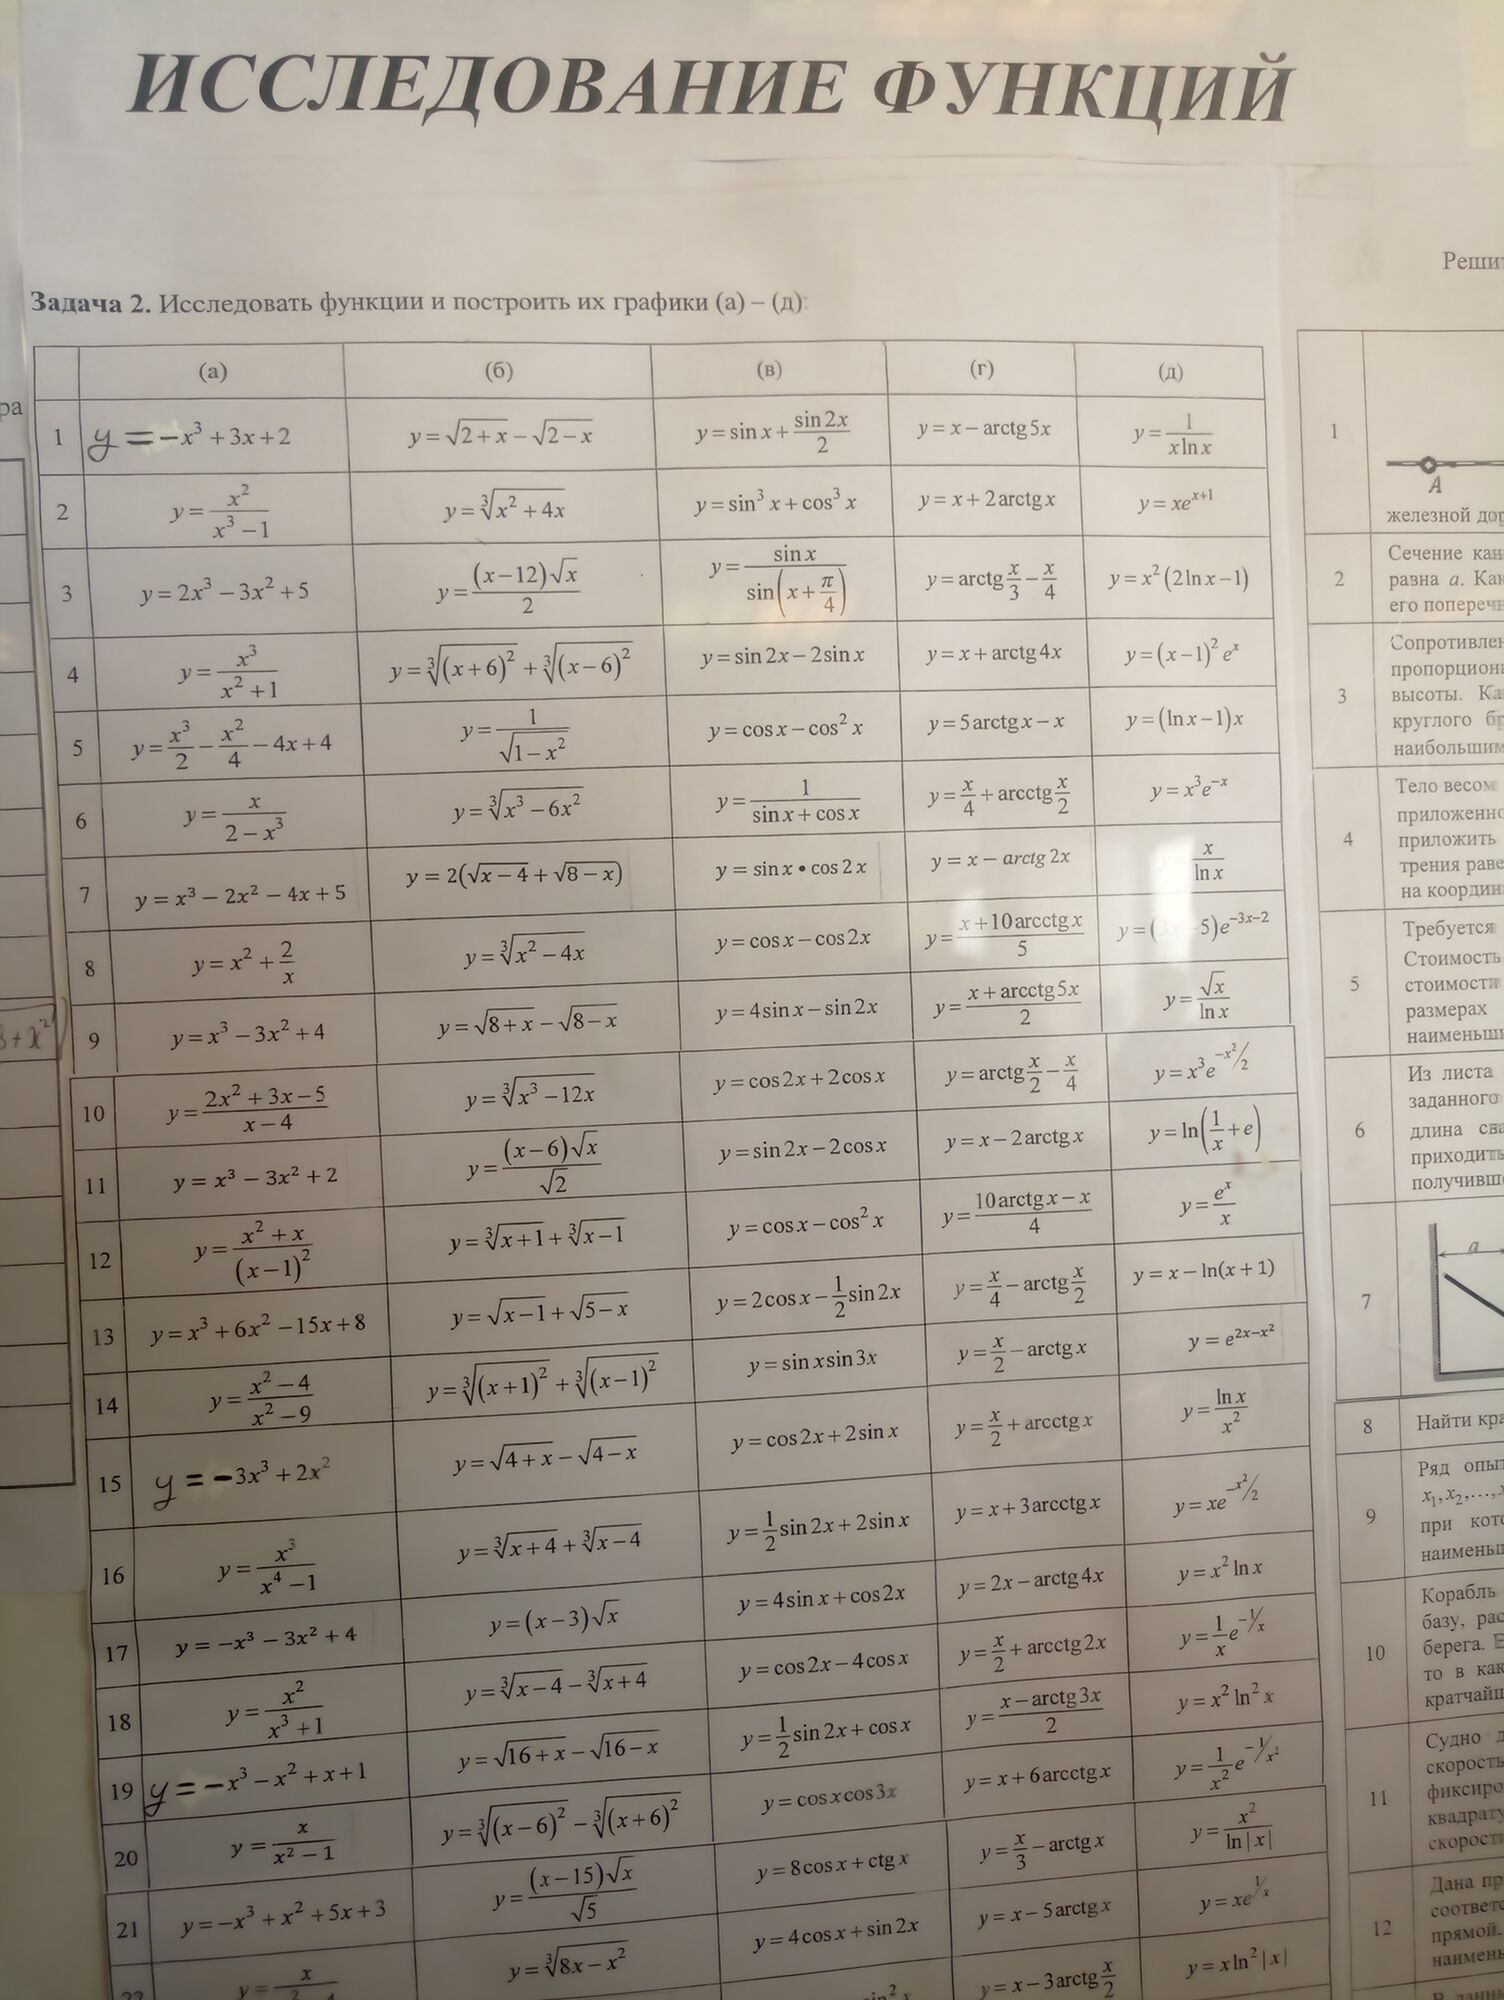 ИССЛЕДОВАНИЕ ФУНКЦИЙ
Решит
Задача 2. Исследовать функции и построить их графики (а) – (д):
(а) (б) (в) (г) (д)
1 y = −x³ + 3x + 2 y = √(2 + x) − √(2 − x) y = sin x + sin 2x / 2 y = x − arctg 5x y = 1 / (x ln x)
2 y = x² / (x³ − 1) y = ∛(x² + 4x) y = sin³ x + cos³ x y = x + 2 arctg x y = xe^(x+1)
3 y = 2x³ − 3x² + 5 y = (x − 12)√x / 2 y = sin x / sin(x + π/4) y = arctg x/3 − x/4 y = x²(2 ln x − 1)
4 y = x³ / (x² + 1) y = ∛(x + 6)² + ∛(x − 6)² y = sin 2x − 2 sin x y = x + arctg 4x y = (x − 1)² e^x
5 y = x³/2 − x²/4 − 4x + 4 y = 1 / √(1 − x²) y = cos x − cos² x y = 5 arctg x − x y = (ln x − 1)x
6 y = x / (2 − x³) y = ∛(x³ − 6x²) y = 1 / (sin x + cos x) y = x/4 + arcctg x/2 y = x³e^(−x)
7 y = x³ − 2x² − 4x + 5 y = 2(√(x − 4) + √(8 − x)) y = sin x • cos 2x y = x − arctg 2x x / ln x
8 y = x² + 2/x y = ∛(x² − 4x) y = cos x − cos 2x y = (x + 10 arcctg x) / 5 y = ( 5)e^(−3x−2)
9 y = x³ − 3x² + 4 y = √(8 + x) − √(8 − x) y = 4 sin x − sin 2x y = (x + arcctg 5x) / 2 y = √x / ln x
10 y = (2x² + 3x − 5) / (x − 4) y = ∛(x³ − 12x) y = cos 2x + 2 cos x y = arctg x/2 − x/4 y = x³e^(−x²/2)
11 y = x³ − 3x² + 2 y = (x − 6)√x / √2 y = sin 2x − 2 cos x y = x − 2 arctg x y = ln(1/x + e)
12 y = (x² + x) / (x − 1)² y = ∛(x + 1) + ∛(x − 1) y = cos x − cos² x y = (10 arctg x − x) / 4 y = e^x / x
13 y = x³ + 6x² − 15x + 8 y = √(x − 1) + √(5 − x) y = 2 cos x − 1/2 sin 2x y = x/4 − arctg x/2 y = x − ln(x + 1)
14 y = (x² − 4) / (x² − 9) y = ∛(x + 1)² + ∛(x − 1)² y = sin x sin 3x y = x/2 − arctg x y = e^(2x−x²)
15 y = −3x³ + 2x² y = √(4 + x) − √(4 − x) y = cos 2x + 2 sin x y = x/2 + arcctg x y = ln x / x²
16 y = x³ / (x⁴ − 1) y = ∛(x + 4) + ∛(x − 4) y = 1/2 sin 2x + 2 sin x y = x + 3 arcctg x y = xe^(−x²/2)
17 y = −x³ − 3x² + 4 y = (x − 3)√x y = 4 sin x + cos 2x y = 2x − arctg 4x y = x² ln x
18 y = x² / (x³ + 1) y = ∛(x − 4) − ∛(x + 4) y = cos 2x − 4 cos x y = x/2 + arcctg 2x y = 1/x e^(−1/x)
19 y = −x³ − x² + x + 1 y = √(16 + x) − √(16 − x) y = 1/2 sin 2x + cos x y = (x − arctg 3x) / 2 y = x² ln² x
20 y = x / (x² − 1) y = ∛(x − 6)² − ∛(x + 6)² y = cos x cos 3x y = x + 6 arcctg x y = 1/x² e^(−1/x²)
21 y = −x³ + x² + 5x + 3 y = (x − 15)√x / √5 y = 8 cos x + ctg x y = x/3 − arctg x y = x² / ln |x|
y = ∛(8x − x²) y = 4 cos x + sin 2x y = x − 5 arctg x y = xe^(1/x)
y = x − 3 arctg x/2 y = x ln² |x|
ра
1
A
железной дор
2 Сечение кан
равна a. Как
его поперечн
3 Сопротивлен
пропорциона
высоты. Ка
круглого бр
наибольшим
4 Тело весом
приложенно
приложить
трения раве
на координ
5 Требуется
Стоимость
стоимости
размерах
наименьши
6 Из листа
заданного
длина сва
приходить
получивше
7 a
8 Найти кра
9 Ряд опыт
x₁, x₂,…,
при кото
наименьш
10 Корабль
базу, рас
берега.
то в как
кратчайш
11 Судно
скорость
фиксиро
квадрату
скорости
12 Дана пр
соответс
прямой.
наимень